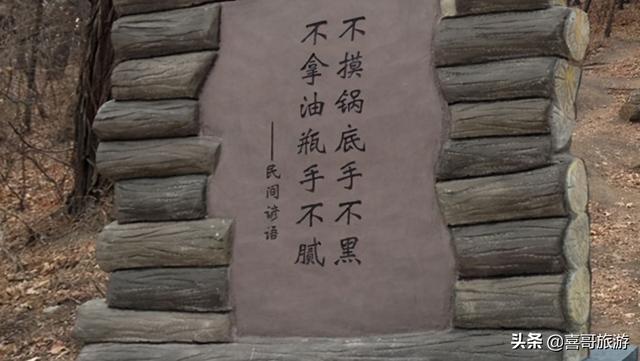 不摸锅底手不黑
不拿油瓶手不腻
——民间谚语
头条@喜哥旅游